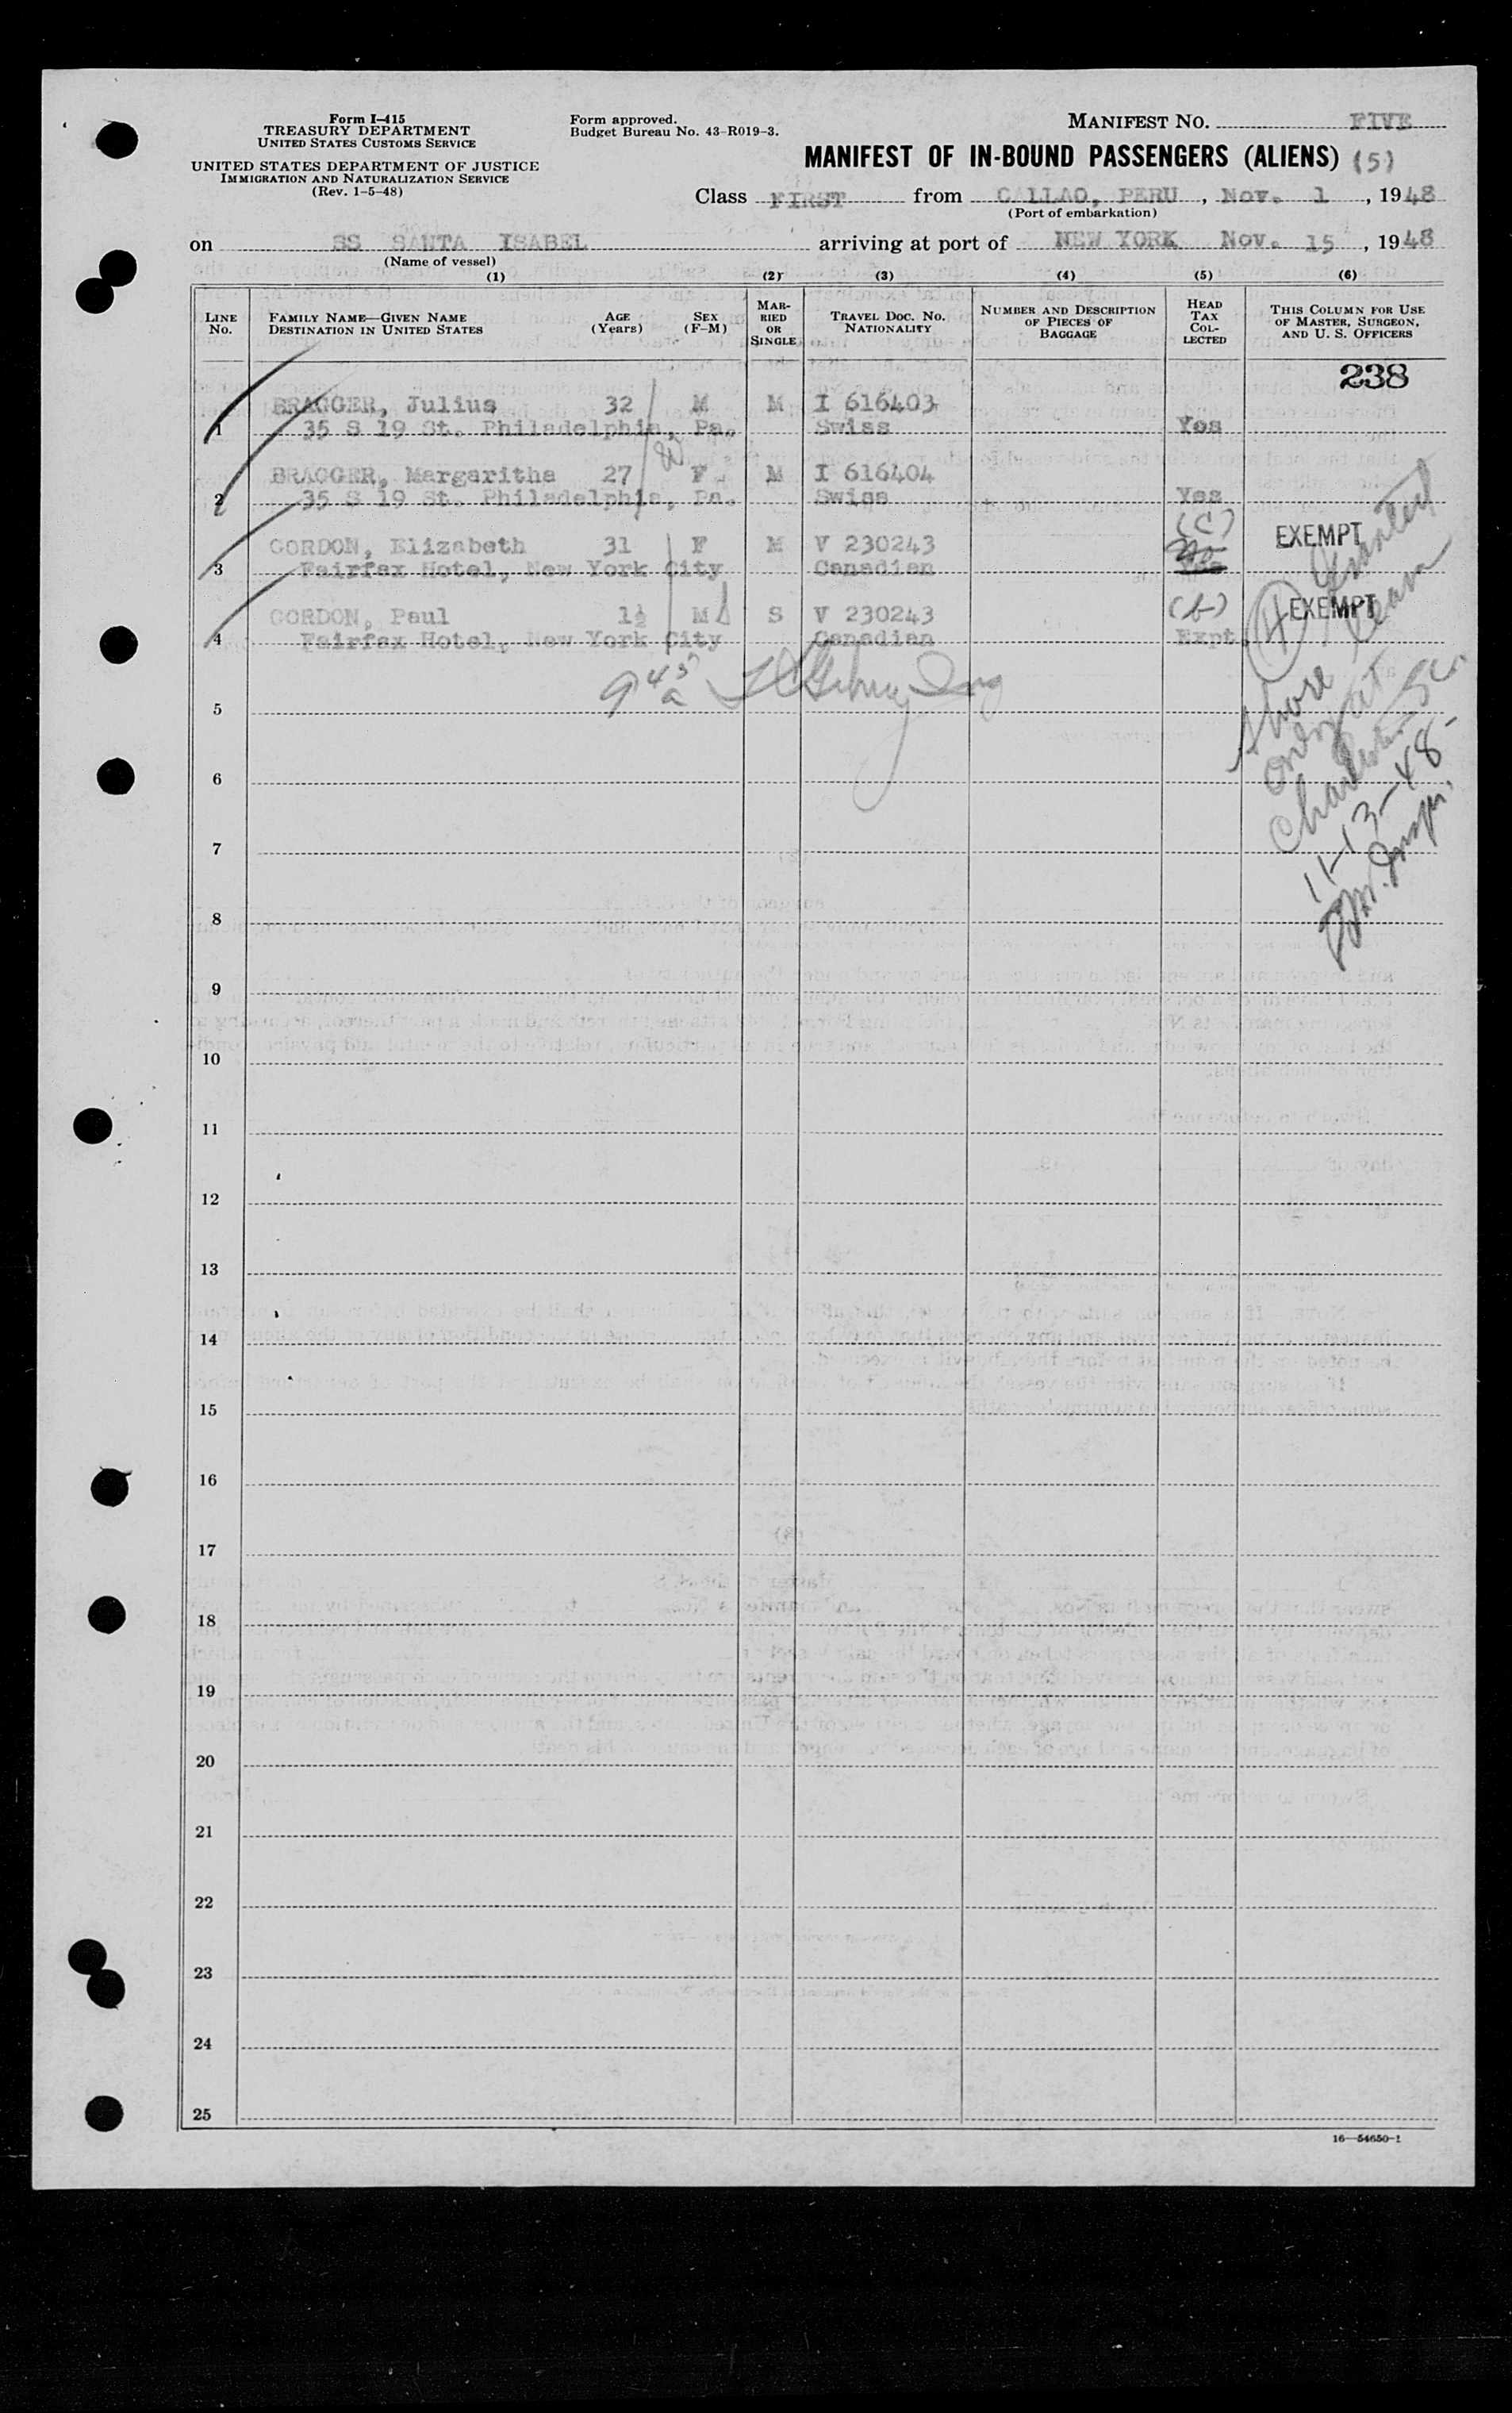 Form I-415
TREASURY DEPARTMENT
UNITED STATES CUSTOMS SERVICE
UNITED STATES DEPARTMENT OF JUSTICE
IMMIGRATION AND NATURALIZATION SERVICE
(Rev. 1-5-48)
Form approved.
Budget Bureau No. 43-R019-3.
MANIFEST NO. FIVE
MANIFEST OF IN-BOUND PASSENGERS (ALIENS) (5)
Class FIRST from CALLAO, PERU, Nov. 1, 1948
(Port of embarkation)
on SS SANTA ISABEL arriving at port of NEW YORK Nov. 15, 1948
(Name of vessel)
(1) (2) (3) (4) (5) (6)
LINE No. FAMILY NAME—GIVEN NAME DESTINATION IN UNITED STATES AGE (Years) SEX (F-M) MARRIED OR SINGLE TRAVEL DOC. NO. NATIONALITY NUMBER AND DESCRIPTION OF PIECES OF BAGGAGE HEAD TAX COLLECTED THIS COLUMN FOR USE OF MASTER, SURGEON, AND U. S. OFFICERS
238
BRAGGER, Julius 32 M M I 616403
1 35 S 19 St. Philadelphia, Pa. Swiss Yes
BRAGGER, Margaritha 27 F M I 616404
2 35 S 19 St. Philadelphia, Pa. Swiss Yes
(C)
GORDON, Elizabeth 31 F M V 230243 No EXEMPT
3 Fairfax Hotel, New York City Canadian Yes
GORDON, Paul 1½ M S V 230243 (b) EXEMPT
4 Fairfax Hotel, New York City Canadian Expt.
9 45 a
Granted
Shore Leave
only at
Charleston SC.
11-13-48-
Insp.
5
6
7
8
9
10
11
12
13
14
15
16
17
18
19
20
21
22
23
24
25
16—54650-1